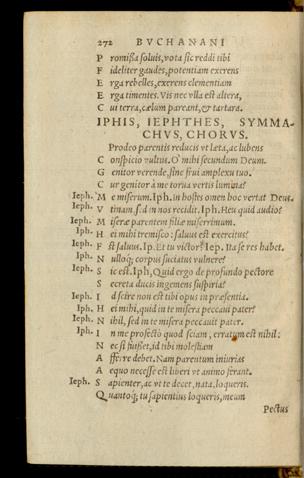 272 BVCHANANI
P romissa soluis, vota sic reddi tibi
F ideliter gaudes, potentiam exerens
E rga rebelles, exerens clementiam
E rga timentes. Vis nec vlla est altera,
C ui terra, cælum pareant, & tartara.
IPHIS, IEPHTHES, SYMMA-
CHVS, CHORVS.
Prodeo parentis reducis vt læta, ac lubens
C onspicio vultus. O mihi secundum Deum.
G enitor verende, sine frui amplexu tuo.
C ur genitor à me torua vertis lumina?
Ieph. M e miserum. Iph. in hostes omen hoc vertat Deus.
Ieph. V tinam. s. d in nos recidit. Iph. Heu quid audio?
Ieph. M iseræ parentem filiæ miserrimum.
Iph. H ei mihi tremisco: saluus est exercitus?
Ieph. F st saluus. Ip. Et tu victor? Iep. Ita se res habet.
Iph. N ulloq; corpus suciatus vulnere?
Ieph. S ic est. Iph, Quid ergo de profundo pectore
S ecreta ducis ingemens suspiria?
Ieph. I d scire non est tibi opus in præsentia.
Iph. H ei mihi, quid in te misera peccaui pater?
Ieph. N ihil, sed in te misera peccauit pater.
Iph. I n me profectò quod sciam, erratum est nihil:
N ec si fuisset, id tibi molestiam
A fferre debet. Nam parentum iniurias
A equo necesse est liberi vt animo ferant.
Ieph. S apienter, ac vt te decet, nata, loqueris.
Q uantoq; tu sapientius loqueris, meum
Pectus